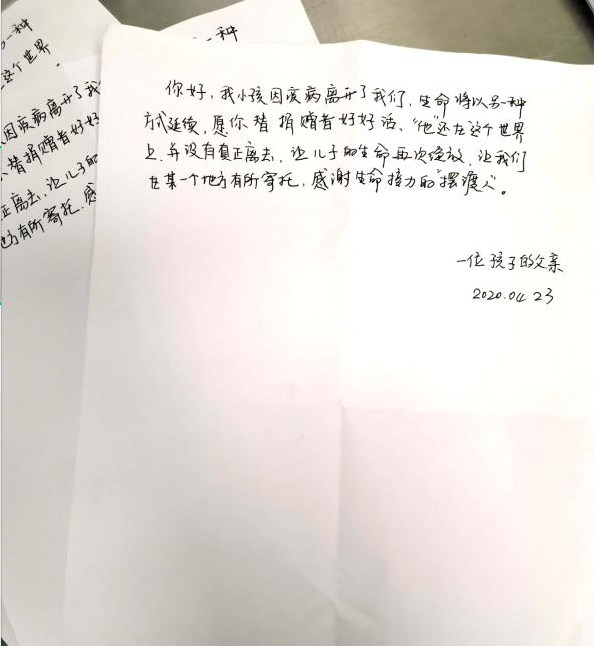 另一种
这个世界
因疾病离开了我
替捐赠者好好
正离去,让儿子的
地方有所寄托,感
一种
你好,我小孩因疾病离开了我们,生命将以另一种
方式延续,愿你替捐赠者好好活、“他”还在这个世界
上,并没有真正离去,让儿子的生命再次绽放,让我们
在某一个地方有所寄托,感谢生命接力的“摆渡人”。
一位孩子的父亲
2020.04 23